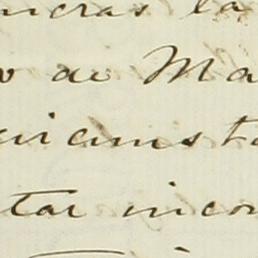 ncras la
o de Ma
circunsta
tar incon